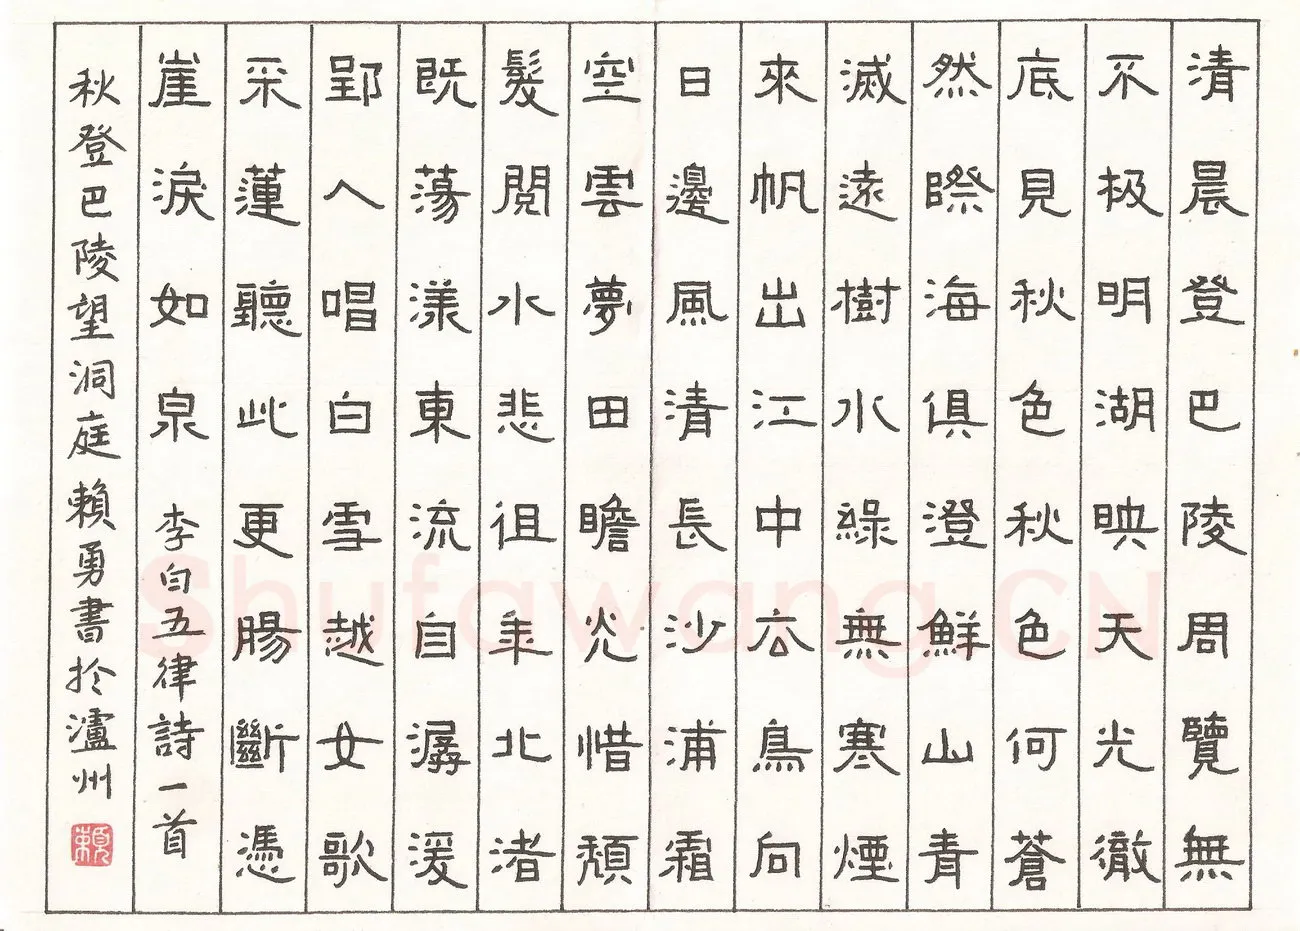 清晨登巴陵周覽無
不极明湖映天光徹
底見秋色秋色何蒼
然際海俱澄鮮山青
滅遠樹水綠無寒煙
來帆出江中去鳥向
日邊風清長沙浦霜
空雲夢田瞻光惜頹
髮閲水悲徂年北渚
既蕩漾東流自潺湲
郢人唱白雪越女歌
采蓮聽此更腸斷憑
崖淚如泉 李白五律詩一首
秋登巴陵望洞庭 賴勇書於瀘州
賴
Shufawang.CN